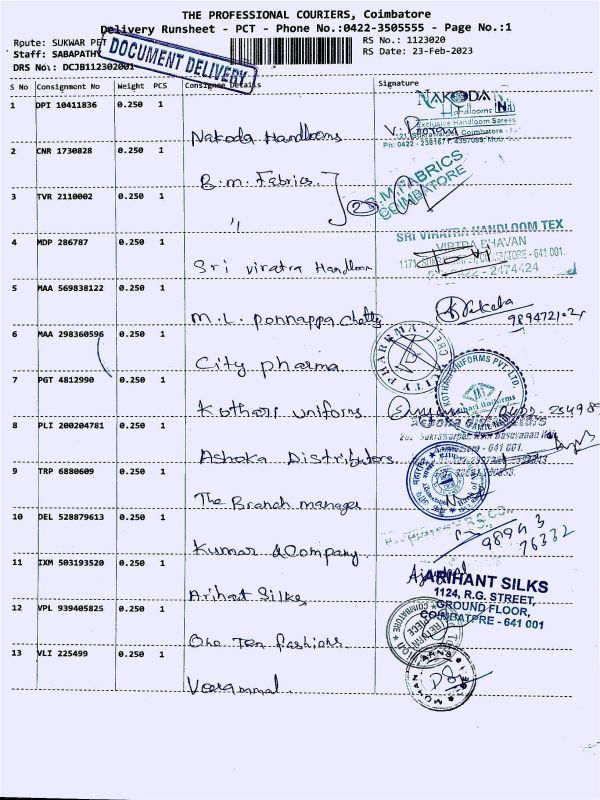 THE PROFESSIONAL COURIERS, Coimbatore
Delivery Runsheet - PCT - Phone No.:0422-3505555 - Page No.:1
Route: SUKWAR PET
RS No.: 1123020
Staff: SABAPATHY
RS Date: 23-Feb-2023
DRS No.: DCJB112302001
DOCUMENT DELIVERY
S No Consignment No Weight PCS Consignee Details Signature
1 DPI 10411836 0.250 1
NAKODA
Handlooms
Exclusive Handloom Sarees
Nakoda Handlooms
2 CNR 1730828 0.250 1
B.M. FABRICS
COIMBATORE
B.M. Fabrics
3 TVR 2110002 0.250 1
" 2
4 MDP 286787 0.250 1
SRI VIRATRA HANDLOOM TEX
VIRTRA BHAVAN
COIMBATORE - 641 001.
2474424
Sri Viratra Handloom
5 MAA 569838122 0.250 1
M.L. Ponnappa Chetty
6 MAA 298360596 0.250 1
CITY PHARMA
City pharma
7 PGT 4812990 0.250 1
KOTHARI UNIFORMS PVT. LTD.
Kothari uniforms
8 PLI 200204781 0.250 1
Ashoka Distributors
9 TRP 6880609 0.250 1
The Branch manager
10 DEL 528879613 0.250 1
98943
76332
Kumar & Company
11 IXM 503193520 0.250 1
ARIHANT SILKS
1124, R.G. STREET,
GROUND FLOOR,
COIMBATPRE - 641 001
Arihat Silks
12 VPL 939405825 0.250 1
One Ten fashions
13 VLI 225499 0.250 1
Veerammal